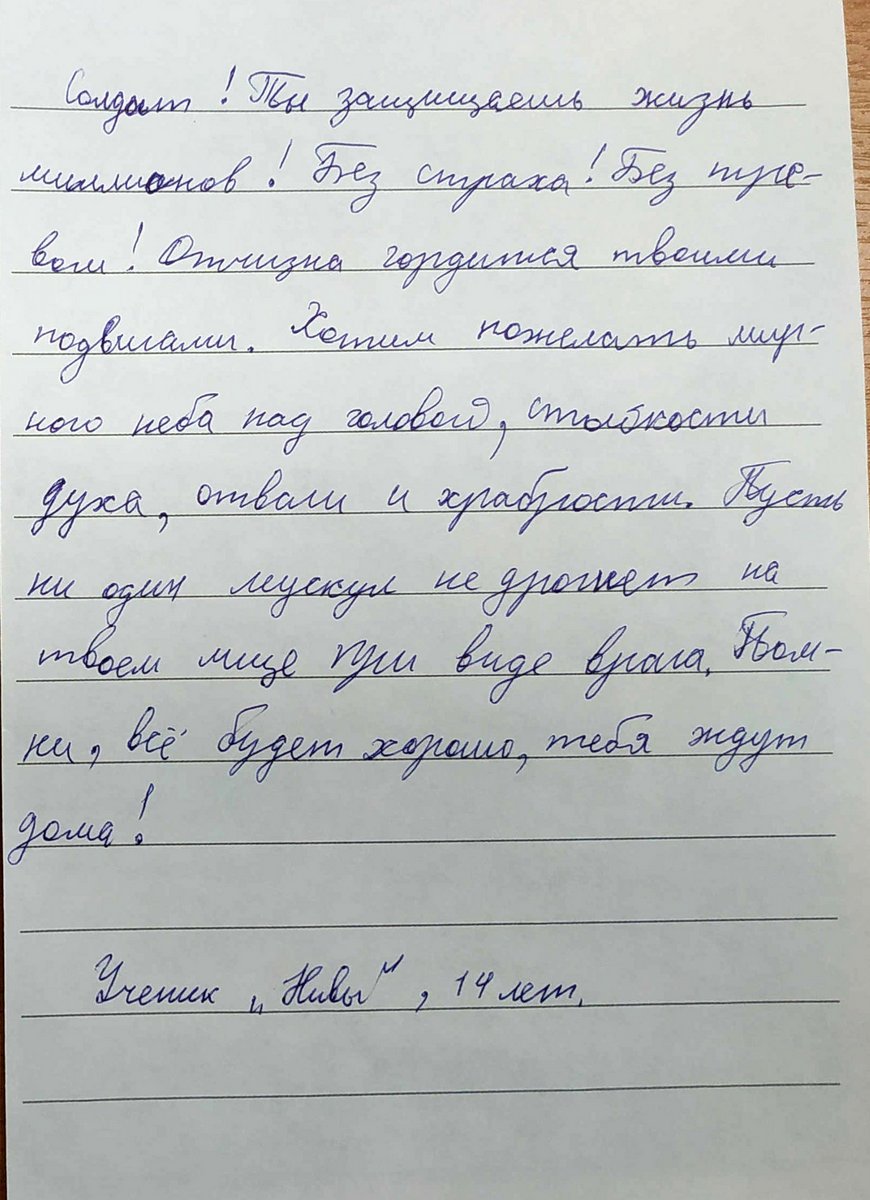 Солдат! Ты защищаешь жизнь
миллионов! Без страха! Без
Отчизна гордится твоими
подвигами. Хотим пожелать мир-
ного неба над головой, стойкости
духа, отваги и храбрости. Пусть
ни один мускул не дрогнет на
твоем лице при виде врага. Пом-
ни, всё будет хорошо, тебя ждут
дома!
Ученик „Нивы", 14 лет.